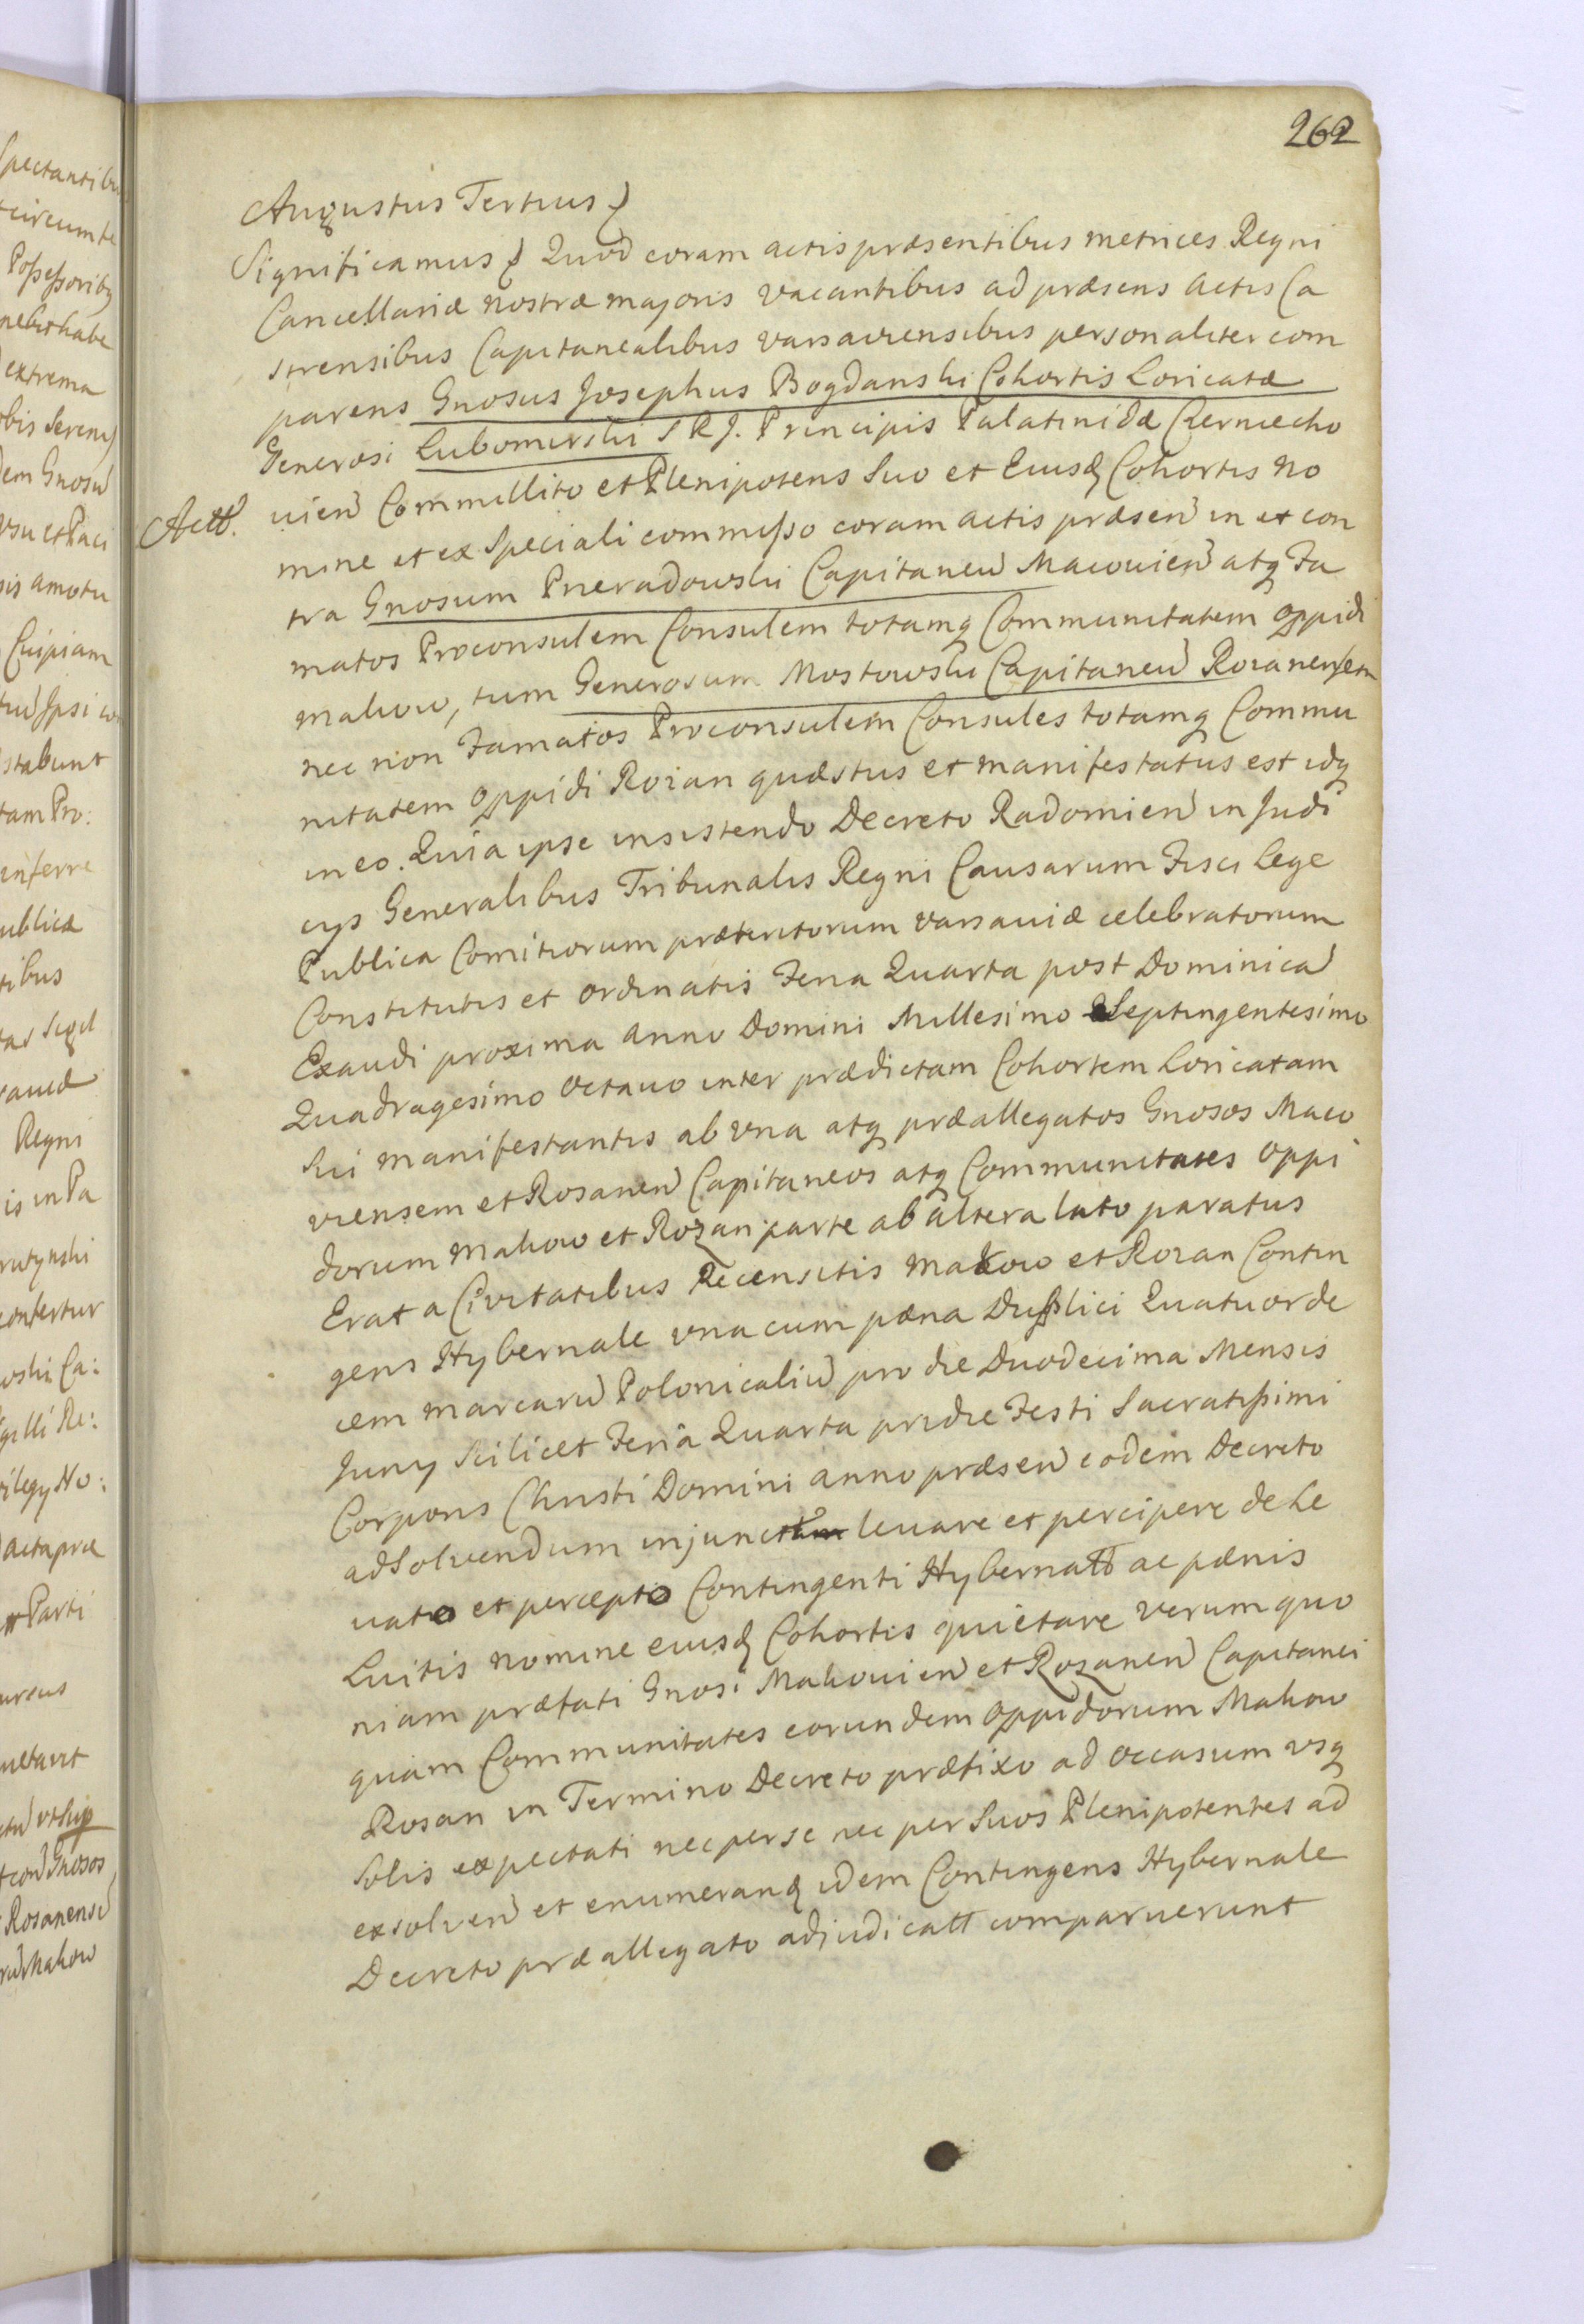 262
Augustus Tertius
Significamus Quod coram actis præsentibus metrices Regni
Cancellariæ nostræ majoris vacantibus ad præsens actis Ca
strensibus Capitanealibus varsaviensibus personaliter com
parens Gnosus Josephus Bogdanski Cohortis Loricatæ
Generosi Lubomirski S R J. Principis Palatinidæ Czerniecho
uien Commilito et Plenipotens Suo et Eiusq Cohortis No
Actt.
mine et ex Speciali commisso coram actis præsen in et con
tra Gnosum Pneradowski Capitaneu Macouien atq Fa
matos Proconsulem Consulem totamq Communitatem oppidi
makow, tum Generosum Mostowski Capitaneu Rozanensem
nec non Famatos Proconsulem Consules totamq Commu
nitatem Oppidi Rozan quæstus et manifestatus est idq
in eo. Quia ipse insistendo Decreto Radomien in Judi
cys Generalibus Tribunalis Regni Causarum Fisci Lege
Publica Comitiorum præteritorum varsaviæ celebratorum
Constitutis et ordinatis Feria Quarta post Dominica
Exaudi proxima anno Domini Millesimo Septingentesimo
Quadragesimo Octavo inter prædictam Cohortem Loricatam
Sui manifestantis ab vna atq præallegatos Gnosos Maco
viensem et Rosanen Capitaneos atq Communitates oppi
dorum Makow et Rozan parte ab altera lato paratus
Erat a Civitatibus Recensitis Makow et Rozan Contin
gens Hybernale vna cum pæna Duplici Quatuorde
cem marcaru Polonicaliu pro die Duodecima Mensis
Juny Scilicet Feria Quarta pridie Festi Sacratissimi
Corporis Christi Domini anno præsen eodem Decreto
adsolvendum injunctum levare et percipere de Le
uato et percepto Contingenti Hybernatt ac pænis
Luitis nomine eiusq Cohortis quietare verum quo
niam præfati Gnosi Makouien et Rozanen Capitanei
quam Communitates eorundem Oppidorum Makow
Rosan in Termino Decreto præfixo ad Occasum vsq
Solis expectati nec per se nec per Suos Plenipotentes ad
exsolven et enumeranq idem Contingens Hybernale
Decreto præallegato adjudicatt comparuerunt